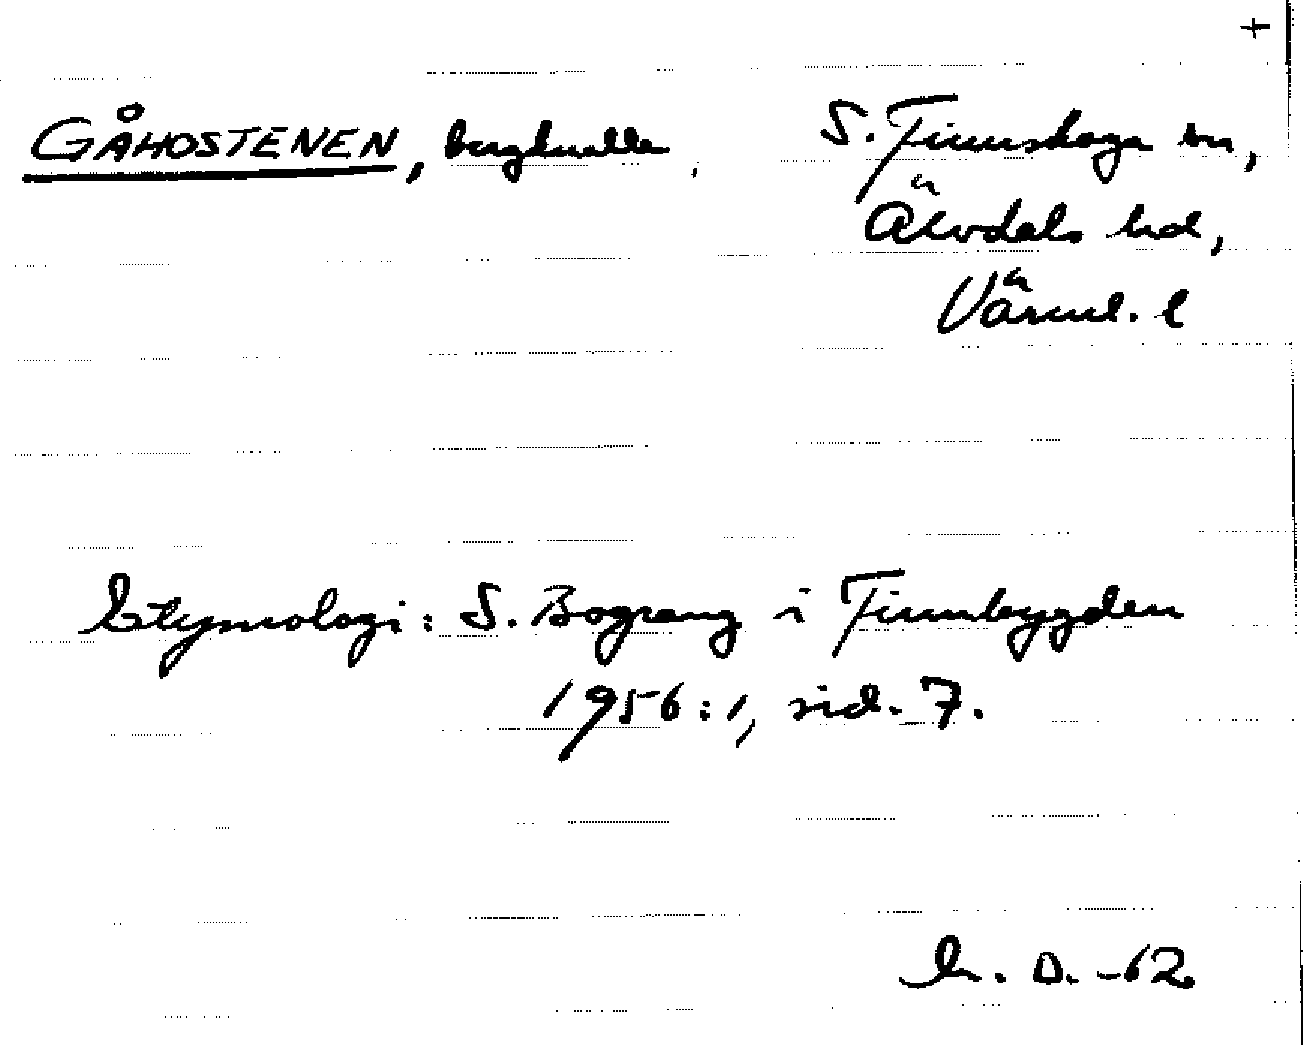 +
GÅHOSTENEN, bergknalle, S. Finnskoga sn,
Älvdals hd,
Värml. l
Etymologi: S. Bograng i Finnbygden
1956:1, sid. 7.
D. -62